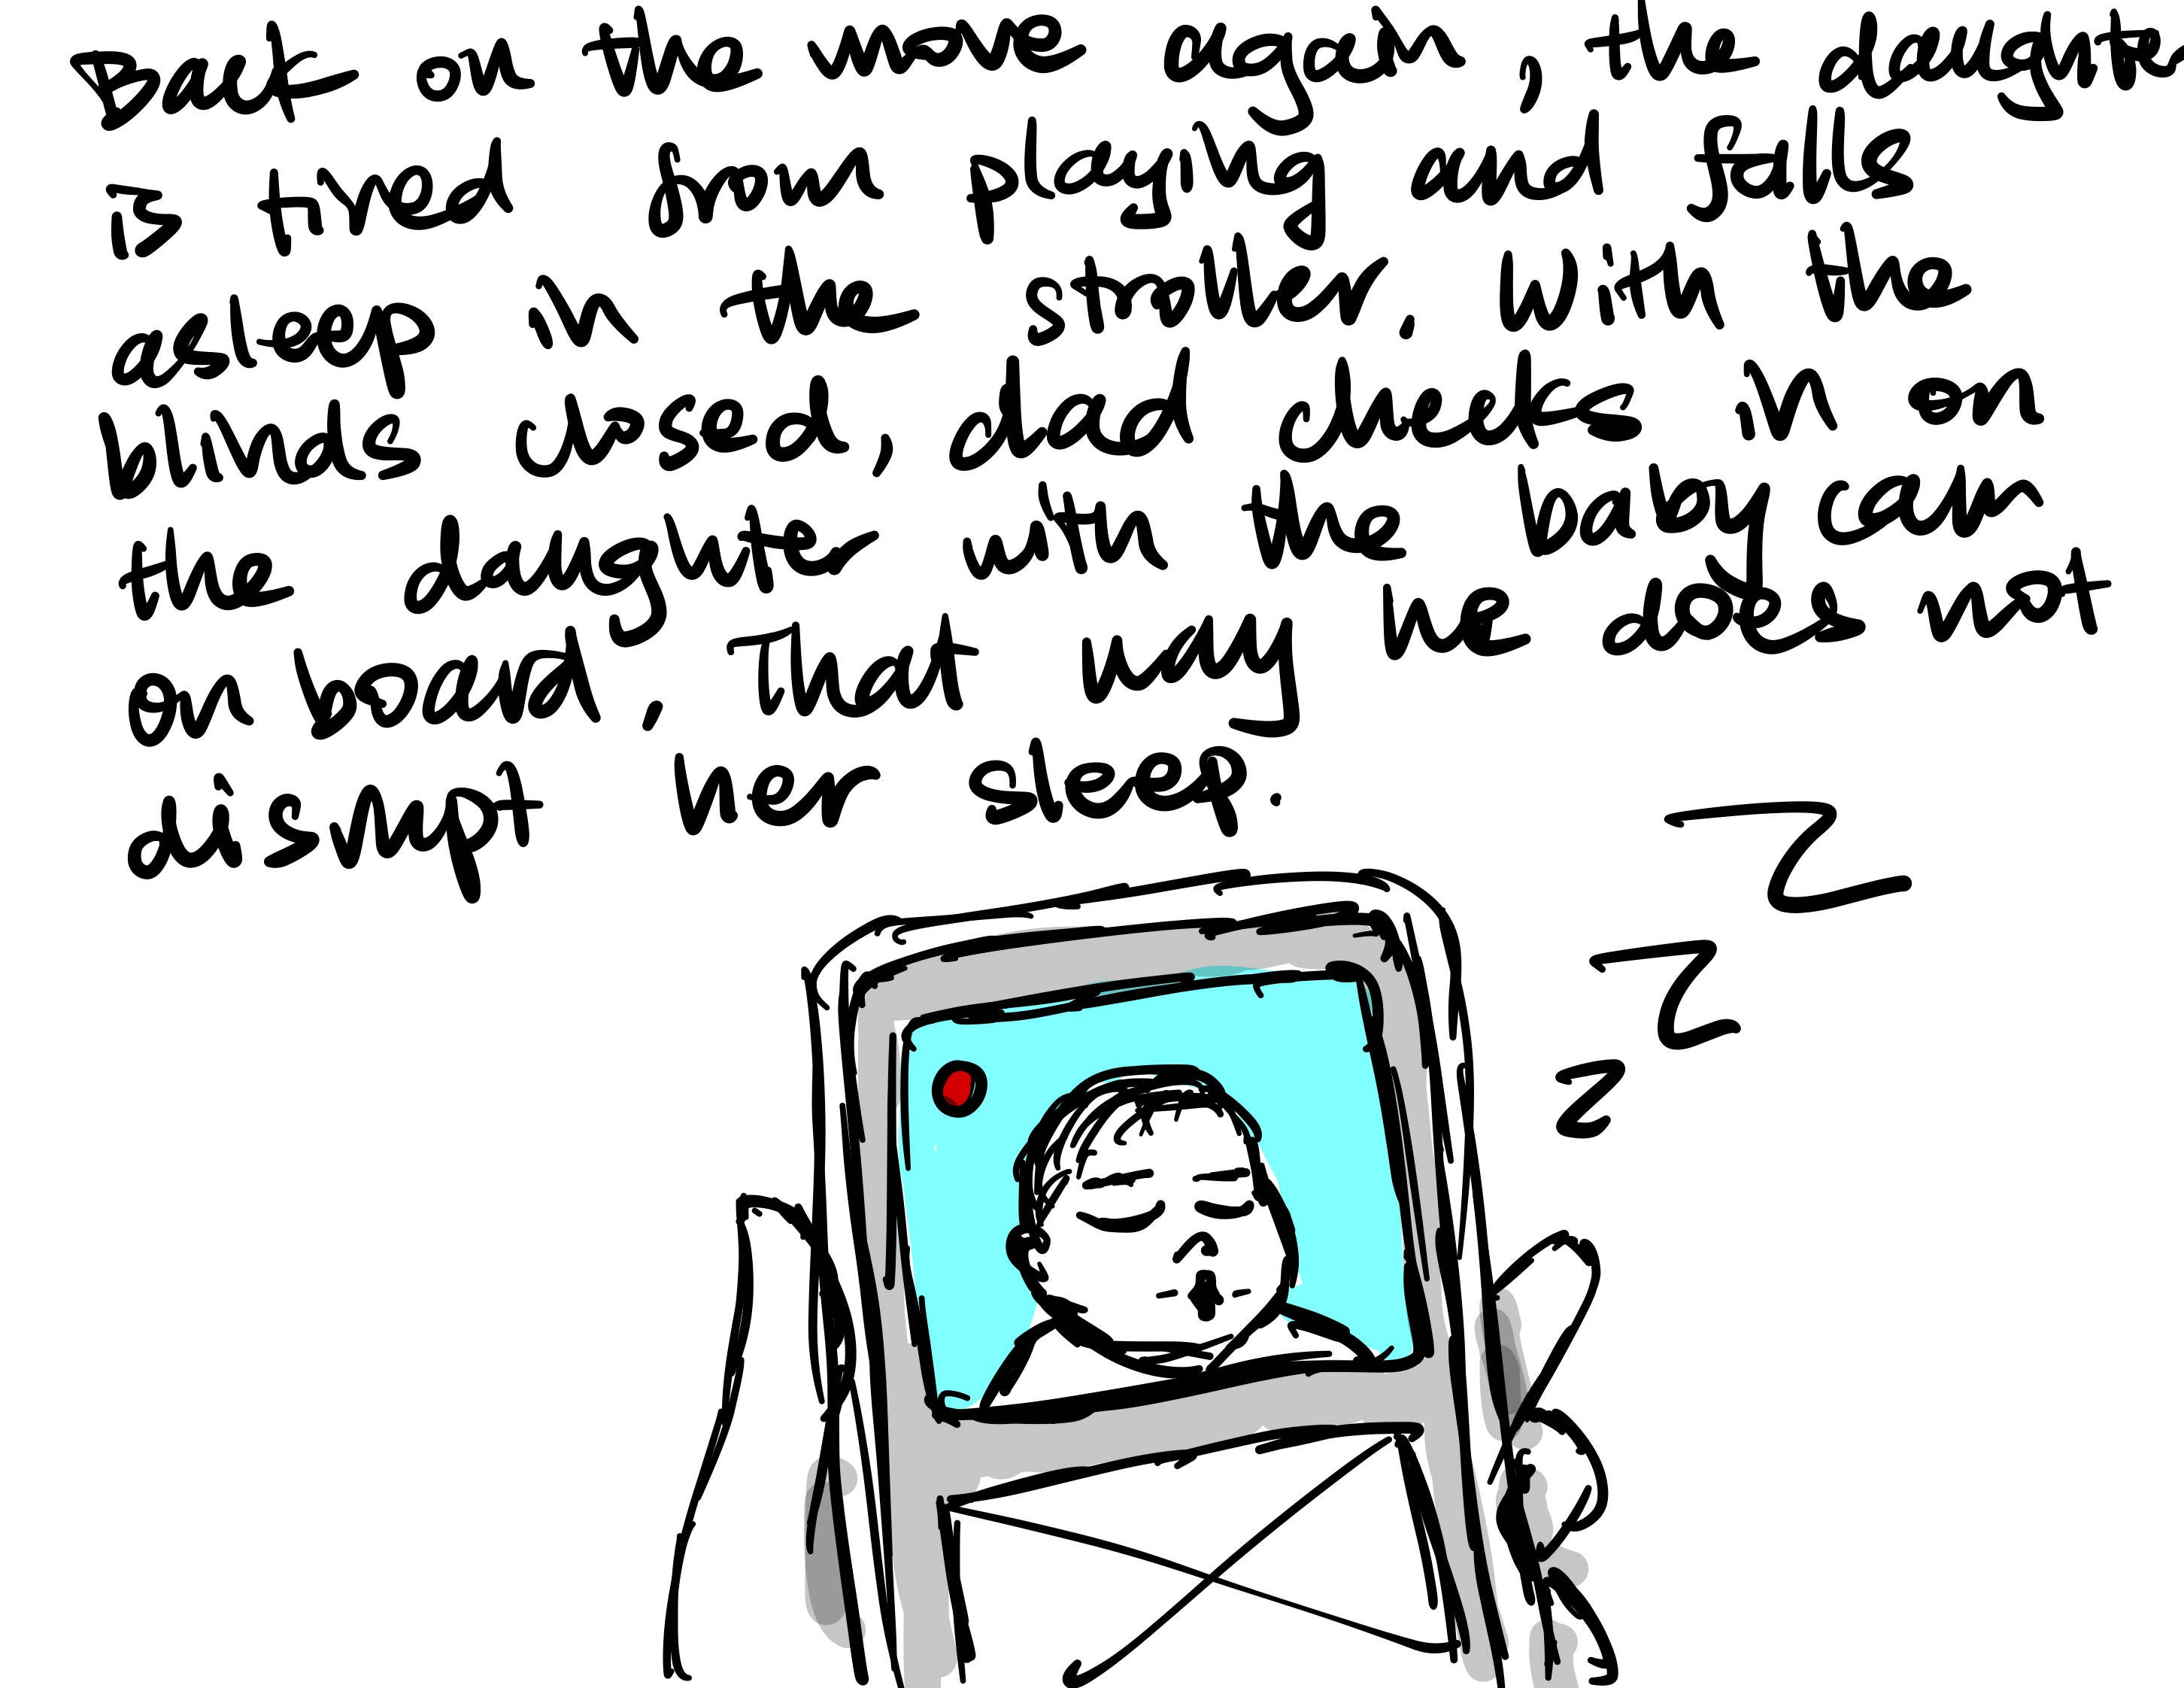 Back on the move again, the daughter
is tired from playing and falls
asleep in the stroller. With the
blinds closed, dad checks in on
the daughter with the baby cam
on board. That way he does not
disrupt her sleep.
Z
Z
Z